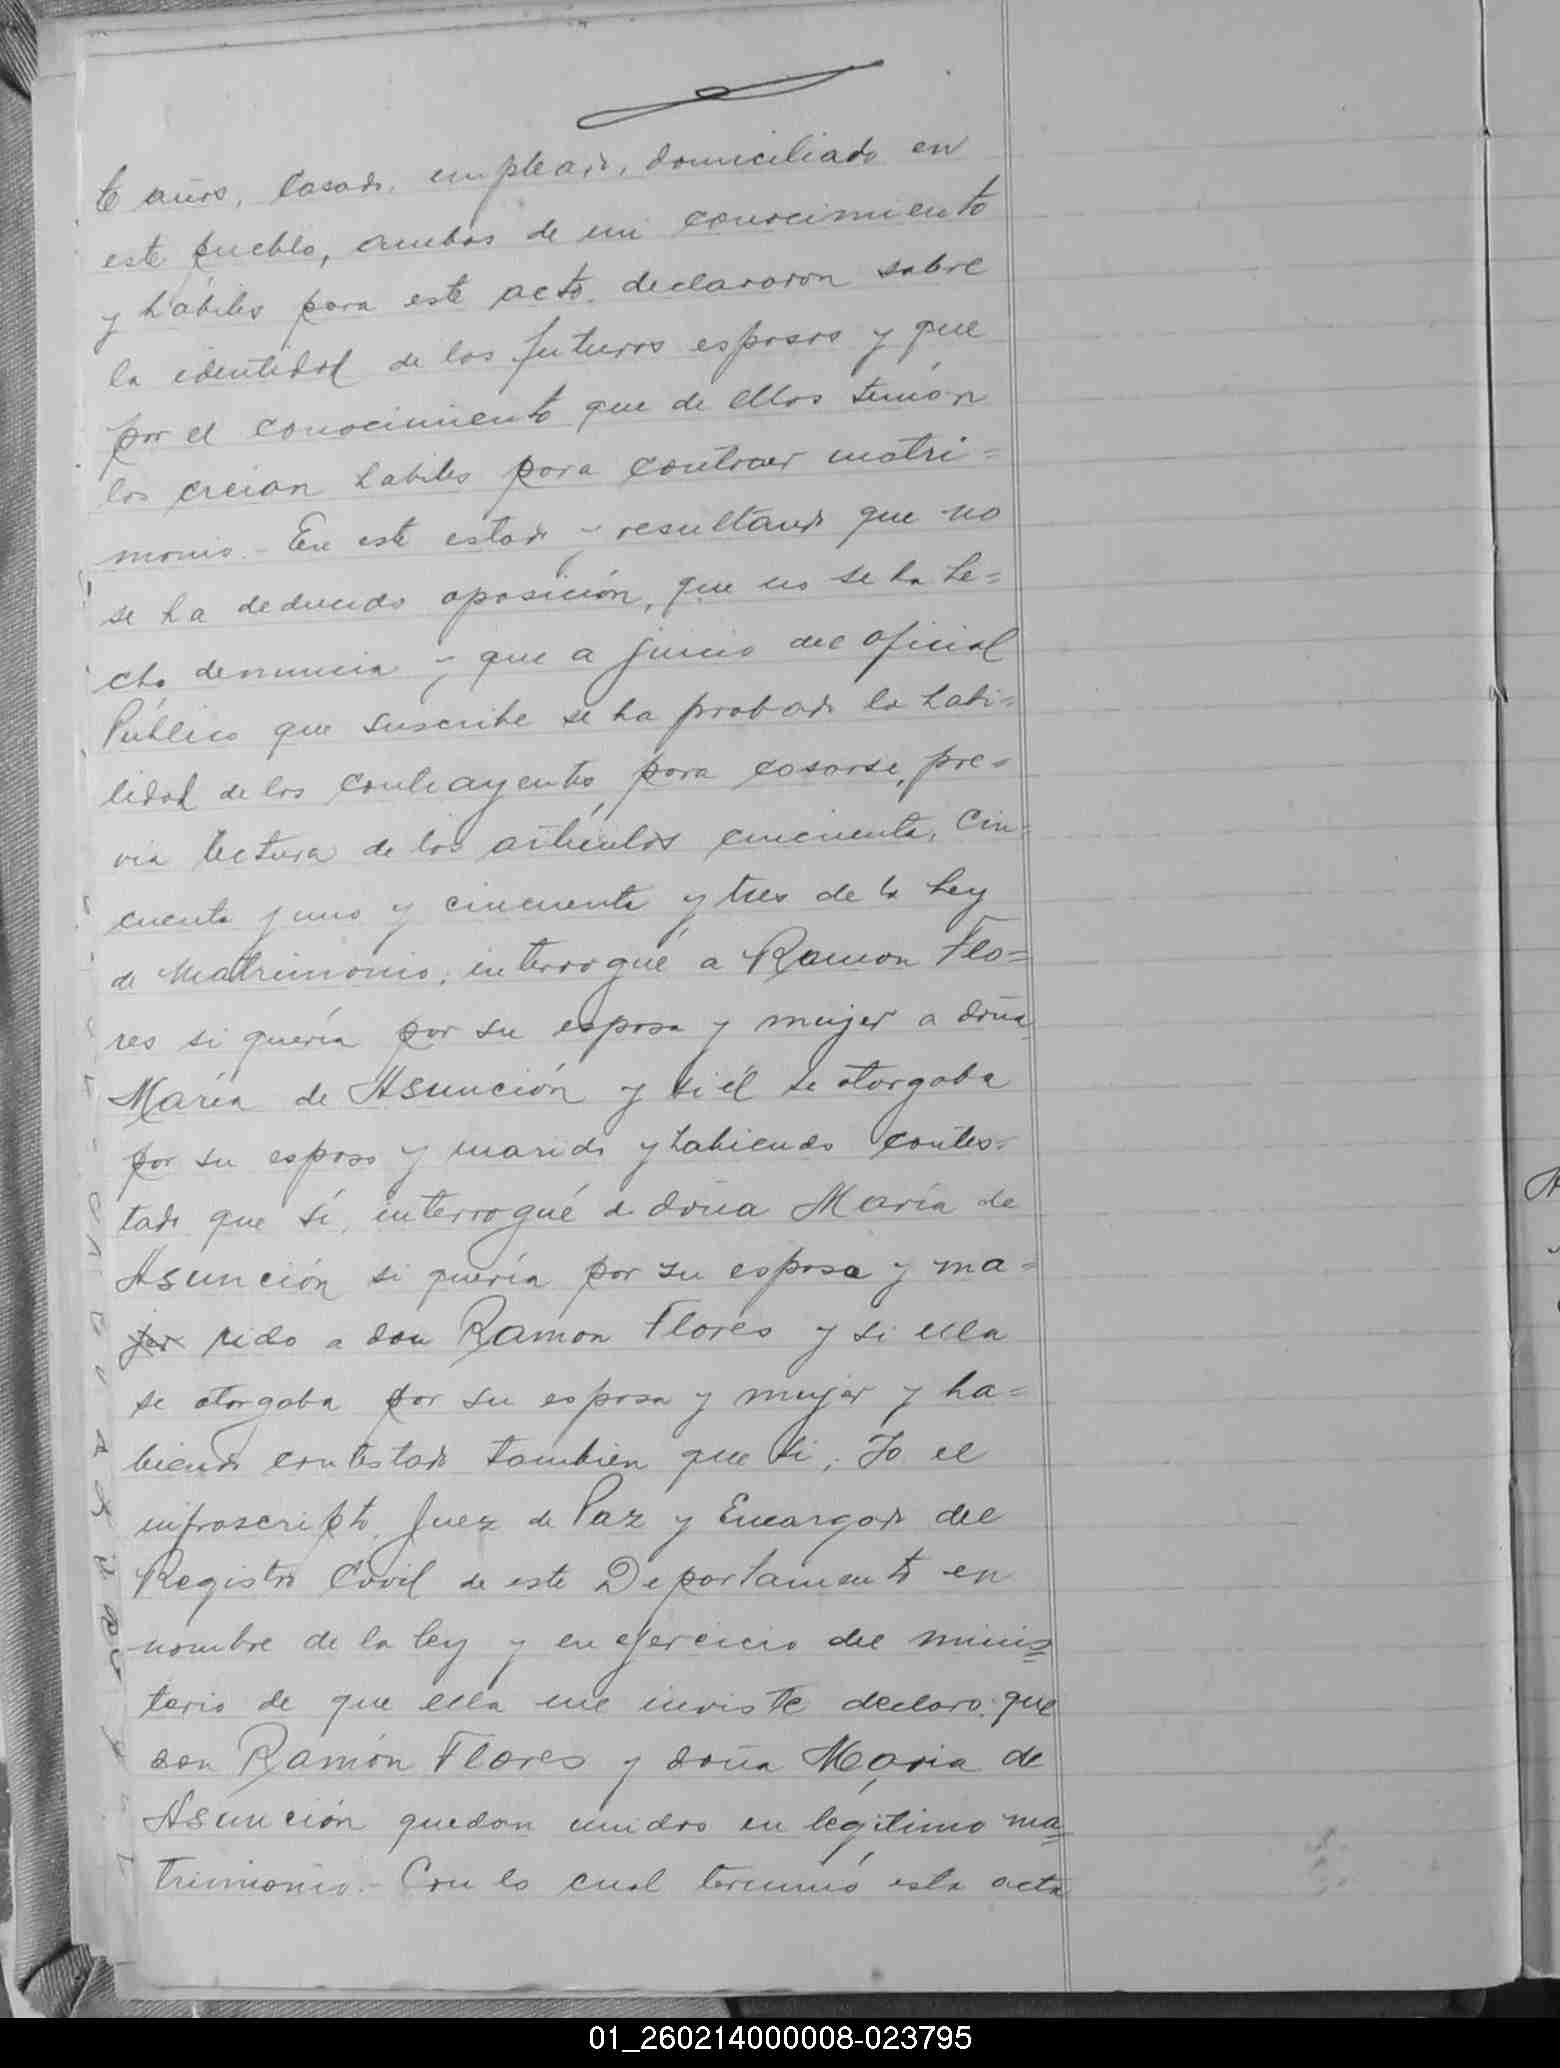 te años, casado, empleado, domiciliado en
este pueblo, ambos de mi conocimiento
y hábiles para este acto declararon sobre
la identidad de los futuros esposos y que
por el conocimiento que de ellos tenían
los creían habiles para contraer matri=
monio.- En este estado y resultando que no
se ha deducido oposición, que no se ha he=
cho denuncia y que a juicio del oficial
Público que suscribe se ha probado la habi=
lidad de los contrayentes para casarse, pre=
via lectura de los artículos cincuenta, cin=
cuenta y uno y cincuenta y tres de la Ley
de Matrimonio, interrogué a Ramon Flo=
res si quería por su esposa y mujer a doña
María de Asunción y si él se otorgaba
por su esposo y marido y habiendo contes=
tado que sí, interrogué a doña María de
Asunción si quería por su esposo y ma=
jer rido a don Ramon Flores y si ella
se otorgaba por su esposa y mujer y ha=
biendo contestado tambien que si, Yo el
infrascripto Juez de Paz y Encargado del
Registro Civil de este Departamento en
nombre de la ley y en ejercicio del minis=
terio de que ella me inviste declaro que
don Ramón Flores y doña María de
Asunción quedan unidos en legítimo ma=
trimonio.- Con lo cual terminó esta acta
01_260214000008-023795